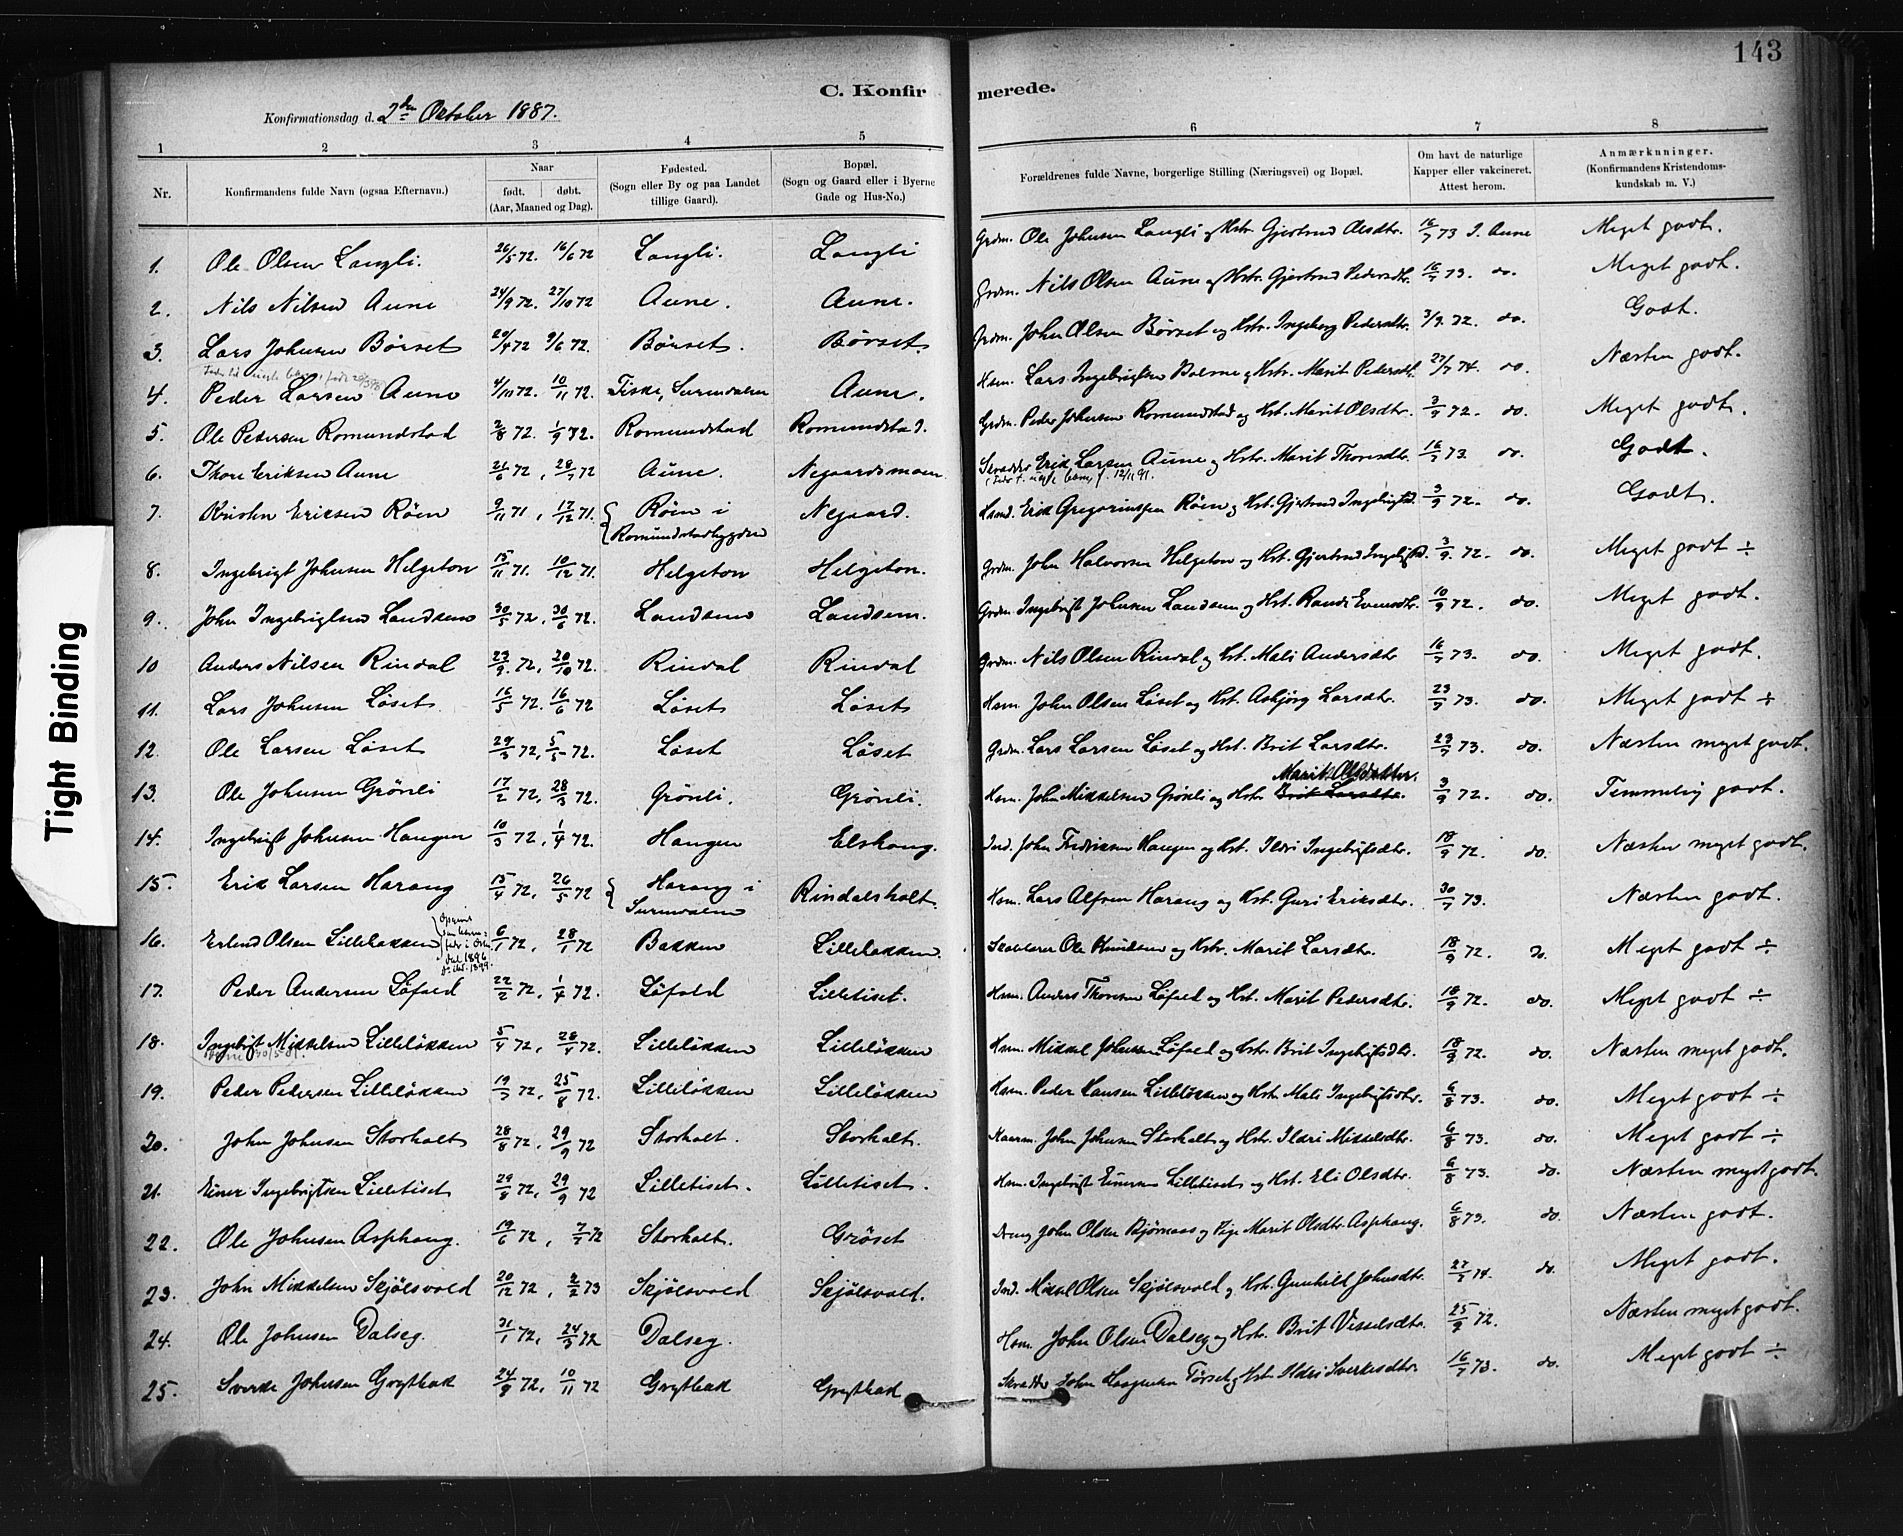 143
C. Konfirmerede.
Konfirmationsdag d. 2den October 1887.
1 2 3 4 5 6 7 8
Nr. Konfirmandens fulde Navn (ogsaa Efternavn.) Naar født. døbt. (Aar, Maaned og Dag). Fødested. (Sogn eller By og paa Landet tillige Gaard). Bopæl. (Sogn og Gaard eller i Byerne Gade og Hus-No.) Forældrenes fulde Navne, borgerlige Stilling (Næringsvei) og Bopæl. Om havt de naturlige Kapper eller vakcineret. Attest herom. Anmærkninger. (Konfirmandens Kristendomskundskab m. V.)
1. Ole Olsen Langli. 26/5 72. 16/6 72 Langli. Langli Grdm. Ole Johnsen Langli og Hstr. Gjertrud Olsdtr. 16/7 73 I. Aune Meget godt.
2. Nils Nilsen Aune 24/9 72. 27/10 72 Aune. Aune. Grdm. Nils Olsen Aune og Hstr. Gjertrud Pedersdtr. 16/7 73. do. Meget godt.
3. Lars Johnsen Børset 20/4 72 9/6 72. Børset. Børset. Grdm. John Olsen Børset og Hstr. Ingeborg Pedersdtr. 3/9. 72. do. Godt.
4. Peder Larsen Aune 4/10 72. 10/11 72. Fiske, Surendalen Aune. Hsm. Lars Ingebrigtsen Bolme og Hstr. Marit Pedersdtr. 27/7 74. do. Næsten godt.
5. Ole Pedersen Romundstad 2/8 72. 1/9 72. Romundstad Romundstad. Grdm. Peder Johnsen Romundstad og Hst. Marit Olsdtr. 3/9 72. do. Meget godt.
6. Thore Eriksen Aune 26/6 72, 28/7 72 Aune. Negaardsmoen Skrædder Erik Larsen Aune og Hstr. Marit Thoresdtr. 16/7 73. do. Godt.
7. Kristen Eriksen Röen 9/11 71, 17/12 71. Röen i Romundstadbygden Negaard. Land. Erik Gregoriussen Röen og Hst. Gjertrud Ingebrigtsd. 3/9 72. do. Godt.
8. Ingebrigt Johnsen Helgeton 15/11 71. 10/12 71. Helgeton Helgeton. Grdm. John Halvorsen Helgeton og Hst. Gjertrud Ingebrigtsd. 3/9 72. do. Meget godt ÷
9. John Ingebrigtsen Landsem 30/5 72, 30/6 72. Landsem Landsem. Grdm. Ingebrigt Johnsen Landsem og Hst. Randi Evensdtr. 10/9 72. do. Meget godt.
10 Anders Nilsen Rindal 23/9. 72, 20/10 72. Rindal Rindal Grdm. Nils Olsen Rindal og Hst. Mali Andersdtr 16/7 73. do. Meget godt.
11. Lars Johnsen Löset 16/5 72. 16/6 72 Löset Löset Hsm. John Olsen Löset og Hst. Asbjørg Larsdtr. 23/7 73. do. Meget godt ÷
12. Ole Larsen Löset 29/3 72, 5/5 72. Löset Löset Grdm. Lars Larsen Löset og Hst. Brit Larsdtr. 23/7 73. do. Næsten meget godt.
13. Ole Johnsen Grönli 17/2 72, 28/3 72. Grönli. Grönli. Hsm. John Mikkelsen Grönli og Hstr Brit Larsdtr. Marit Olsdatter. 3/9 72. do. Temmelig godt.
14. Ingebrigt Johnsen Haugen 10/3 72, 1/4 72. Haugen Elshaug. Ind. John Fredriksen Haugen og Hst. Ildri Ingebrigtsdtr. 18/9 72. do. Næsten meget godt.
15. Erik Larsen Harang 15/4 72, 26/5 72 Harang i Surendalen Rindalsholt. Hsm. Lars Alfsen Harang og Hst. Guri Eriksdtr. 30/7 73. Næsten godt.
16. Erlend Olsen Lillebakken 6/1 72, 28/1 72 Bakken Lillebakken. Skolelærer Ole Knudsen og Hstr. Marit Larsdtr. 18/9 72. Do. Meget godt ÷
17. Peder Andersen Löfald 22/2 72, 1/4 72. Löfald Lilletiset. Hsm. Anders Thoresen Löfald og Hst. Marit Pedersdtr. 18/9 72. do. Meget godt ÷
18. Ingebrigt Mikkelsen Lilleløkken 5/4 72, 28/4 72. Lilleløkken Lilleløkken Hsm. Mikkel Johnsen Løfald og Hstr. Brit Ingebrigtsdtr. 18/9 72. do. Næsten meget godt.
19. Peder Pedersen Lilleløkken 19/7 72, 25/8 72. Lilleløkken Lilleløkken Hsm. Peder Hansen Lilleløkken og Hst. Mali Ingebrigtsdtr. 6/8 73. do. Meget godt ÷
20. John Johnsen Storholt 28/8 72, 29/9 72 Storholt. Storholt. Kaarm. John Johnsen Storholt og Hst. Ildri Mikkelsdtr. 6/8 73. do. Meget godt ÷
21. Einer Ingebrigtsen Lilletiset 29/8 72, 29/9 72 Lilletiset. Lilletiset. Hsm. Ingebrigt Einersen Lilletiset og Hst. Eli Olsdtr. 6/8 73. do. Næsten meget godt.
22. Ole Johnsen Asphaug. 19/6 72, 7/7 72 Storholt. Gröset Dreng John Olsen Bjørnaas og Pige Marit Olsdtr. Asphaug. 6/8 73. do. Næsten godt.
23. John Mikkelsen Skjølsvold 20/12 72, 2/2 73 Skjølsvold Skjølsvold. Ind. Mikkel Olsen Skjølsvold og Hst. Gunhild Johnsdtr. 27/7 74. do. Meget godt.
24. Ole Johnsen Dalseg. 31/1 72, 24/3 72 Dalseg. Hsm. John Olsen Dalseg og Hstr. Brit Visselsdtr. 25/9 72. Næsten meget godt.
25. Sverke Johnsen Grytbak 24/9 72, 10/11 72 Grytbak Grytbak Skrædder John Haagensen Tørset og Hst. Ildri Sverkesdtr. 16/7 73. do. Meget godt ÷
Tight Binding